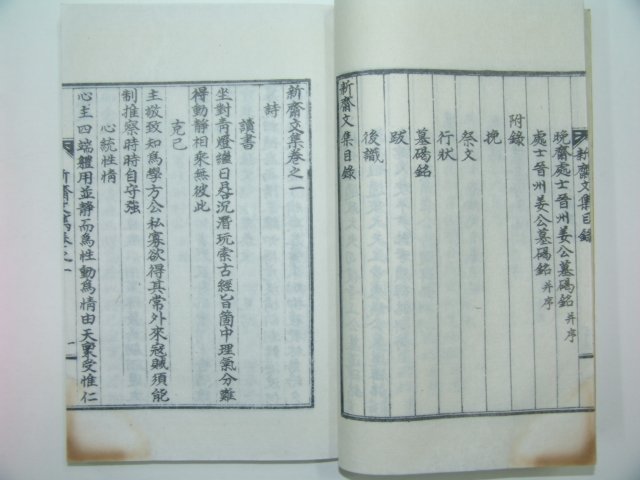 新齋文集目錄
晩齋處士晉州姜公墓碣銘 并序
處士晉州姜公墓碣銘 并序
附錄
挽
祭文
行狀
墓碣銘
跋
後識
新齋文集目錄
新齋文集卷之一
詩
讀書
坐對青燈繼日昏沉潛玩索古經旨箇中理氣分離
得動靜相乘無彼此
克己
主敬致知爲學方公私寡欲得其常外來寇賊須能
制推察時時自守強
心統性情
心主四端體用並靜而爲性動爲情由天稟受惟仁
新齋文集卷之一
一